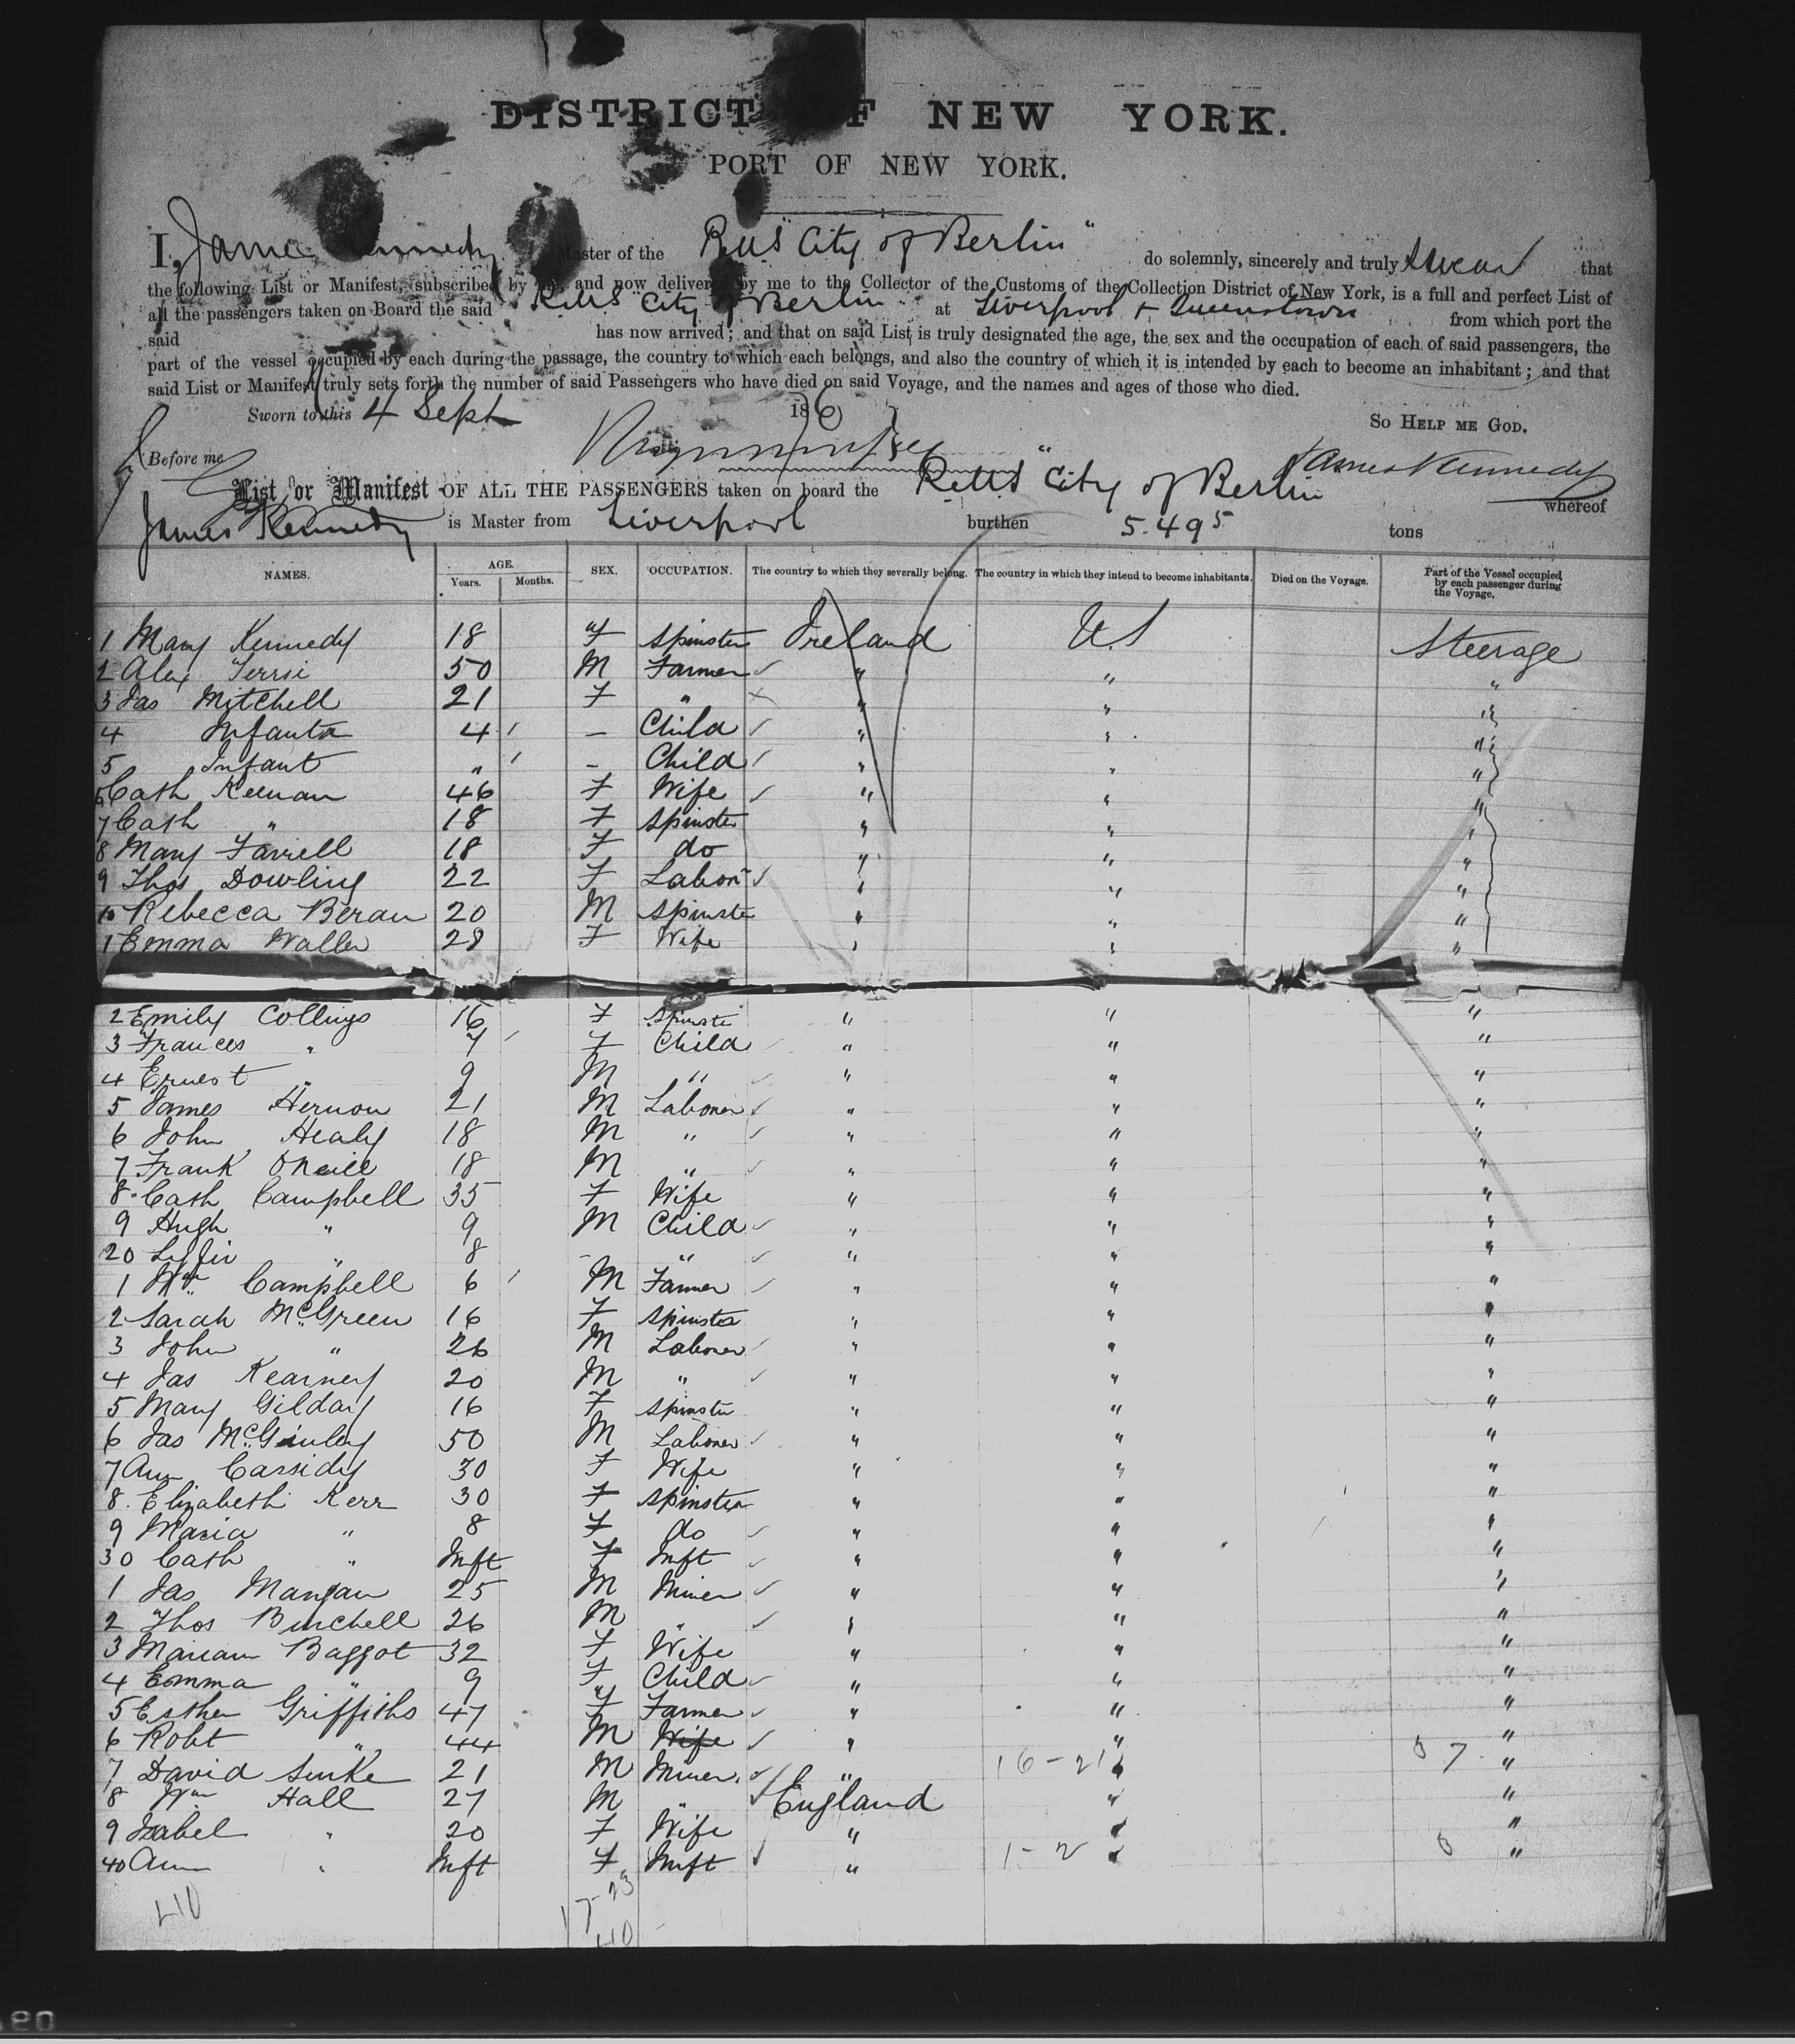 DISTRICT OF NEW YORK.
PORT OF NEW YORK.
I, James Kennedy Master of the RMS "City of Berlin" do solemnly, sincerely and truly swear that
the following List or Manifest, subscribed by and now delivered by me to the Collector of the Customs of the Collection District of New York, is a full and perfect List of
all the passengers taken on Board the said RMS "City of Berlin" at Liverpool & Queenstown from which port the
said has now arrived; and that on said List is truly designated the age, the sex and the occupation of each of said passengers, the
part of the vessel occupied by each during the passage, the country to which each belongs, and also the country of which it is intended by each to become an inhabitant; and that
said List or Manifest truly sets forth the number of said Passengers who have died on said Voyage, and the names and ages of those who died.
Sworn to this 4 Sept 18 So Help me God.
Before me James Kennedy
List or Manifest OF ALL THE PASSENGERS taken on board the RMS "City of Berlin whereof
James Kennedy is Master from Liverpool burthen 5.495 tons
NAMES. AGE. Years. Months. SEX. OCCUPATION. The country to which they severally belong. The country in which they intend to become inhabitants. Died on the Voyage. Part of the Vessel occupied by each passenger during the Voyage.
1 Mary Kennedy 18 F Spinster Ireland U.S Steerage
2 Alex 50 M Farmer " " "
3 Jas Mitchell 21 F " " " "
4 Infanta 4 - Child " " "
5 Infant " - Child " " "
6 Cath Keenan 46 F Wife " " "
7 Cath " 18 F Spinster " " "
8 Mary Farrell 18 F do " " "
9 Thos Dowling 22 F Labor " " "
10 Rebecca Beran 20 M Spinster " " "
1 Emma Waller 28 F Wife " " "
2 Emily Collings 16 F Spinster " " "
3 Frances " 7 F Child " " "
4 Ernest " 9 M " " " "
5 James Hernon 21 M Laborer " " "
6 John Healy 18 M " " " "
7 Frank ONeill 18 M " " " "
8 Cath Campbell 35 F Wife " " "
9 Hugh " 9 M Child " " "
20 " 8 - " " " "
1 Wm Campbell 6 M Farmer " " "
2 Sarah McGreen 16 F Spinster " " "
3 John " 26 M Laborer " " "
4 Jas Kearney 20 M " " " "
5 Mary Gilday 16 F Spinster " " "
6 Jas McGinley 50 M Laborer " " "
7 Ann Cassidy 30 F Wife " " "
8 Elizabeth Kerr 30 F Spinster " " "
9 Maria " 8 F do " " "
30 Cath " Inft F Inft " " "
1 Jas Mangan 25 M Miner " " "
2 Thos Burchell 26 M " " " "
3 Mariam Baggot 32 F Wife " " "
4 Emma " 9 F Child " " "
5 Esther Griffiths 47 F Farmer " " "
6 Robt " 44 M Wife " " "
7 David 21 M Miner " 16-21 " 0 7 "
8 Wm Hall 27 M " England " "
9 Isabel " 20 F Wife " " "
40 Ann " Inft F Inft " 1-2 " 0 "
L10 17-23
40